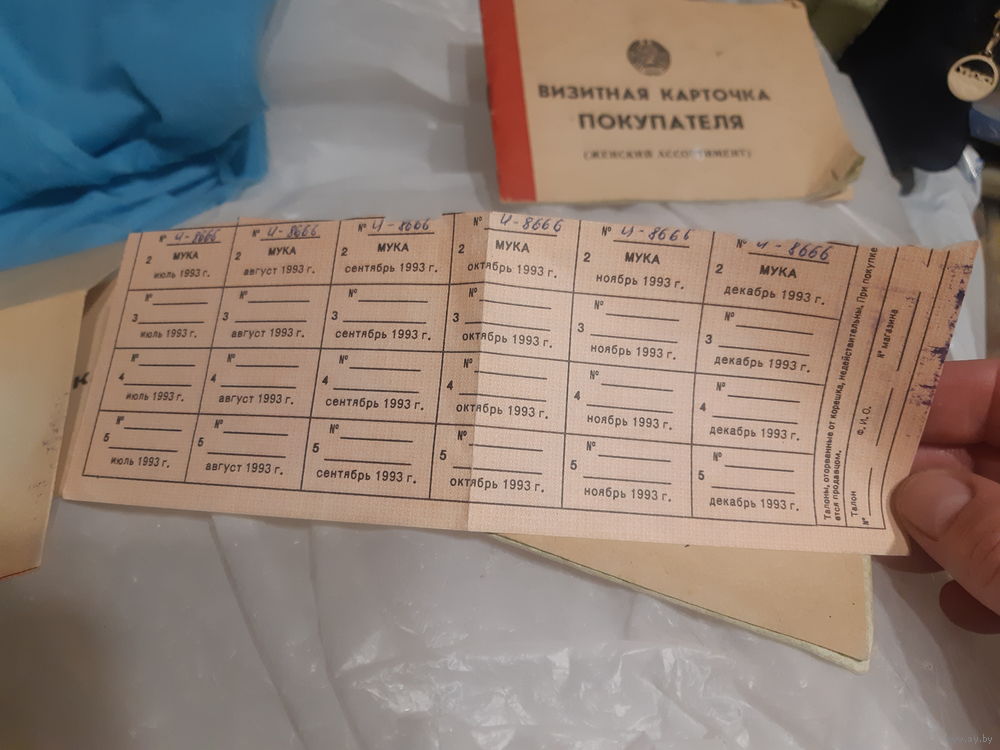 ВИЗИТНАЯ КАРТОЧКА
ПОКУПАТЕЛЯ
(ЖЕНСКИЙ АССОРТИМЕНТ)
№ Ч-8666 № Ч-8666 № Ч-8666 № Ч-8666 № Ч-8666 № Ч-8666
2 МУКА 2 МУКА 2 МУКА 2 МУКА 2 МУКА 2 МУКА
июль 1993 г. август 1993 г. сентябрь 1993 г. октябрь 1993 г. ноябрь 1993 г. декабрь 1993 г.
№ № № № № №
3 3 3 3 3 3
июль 1993 г. август 1993 г. сентябрь 1993 г. октябрь 1993 г. ноябрь 1993 г. декабрь 1993 г.
№ № № № № №
4 4 4 4 4 4
июль 1993 г. август 1993 г. сентябрь 1993 г. октябрь 1993 г. ноябрь 1993 г. декабрь 1993 г.
№ № № № № №
5 5 5 5 5 5
июль 1993 г. август 1993 г. сентябрь 1993 г. октябрь 1993 г. ноябрь 1993 г. декабрь 1993 г.
Талоны, оторванные от корешка, недействительны. При покупке
ется продавцом.
Талон
№
Ф. И. О.
№ магазина
К
ay.by